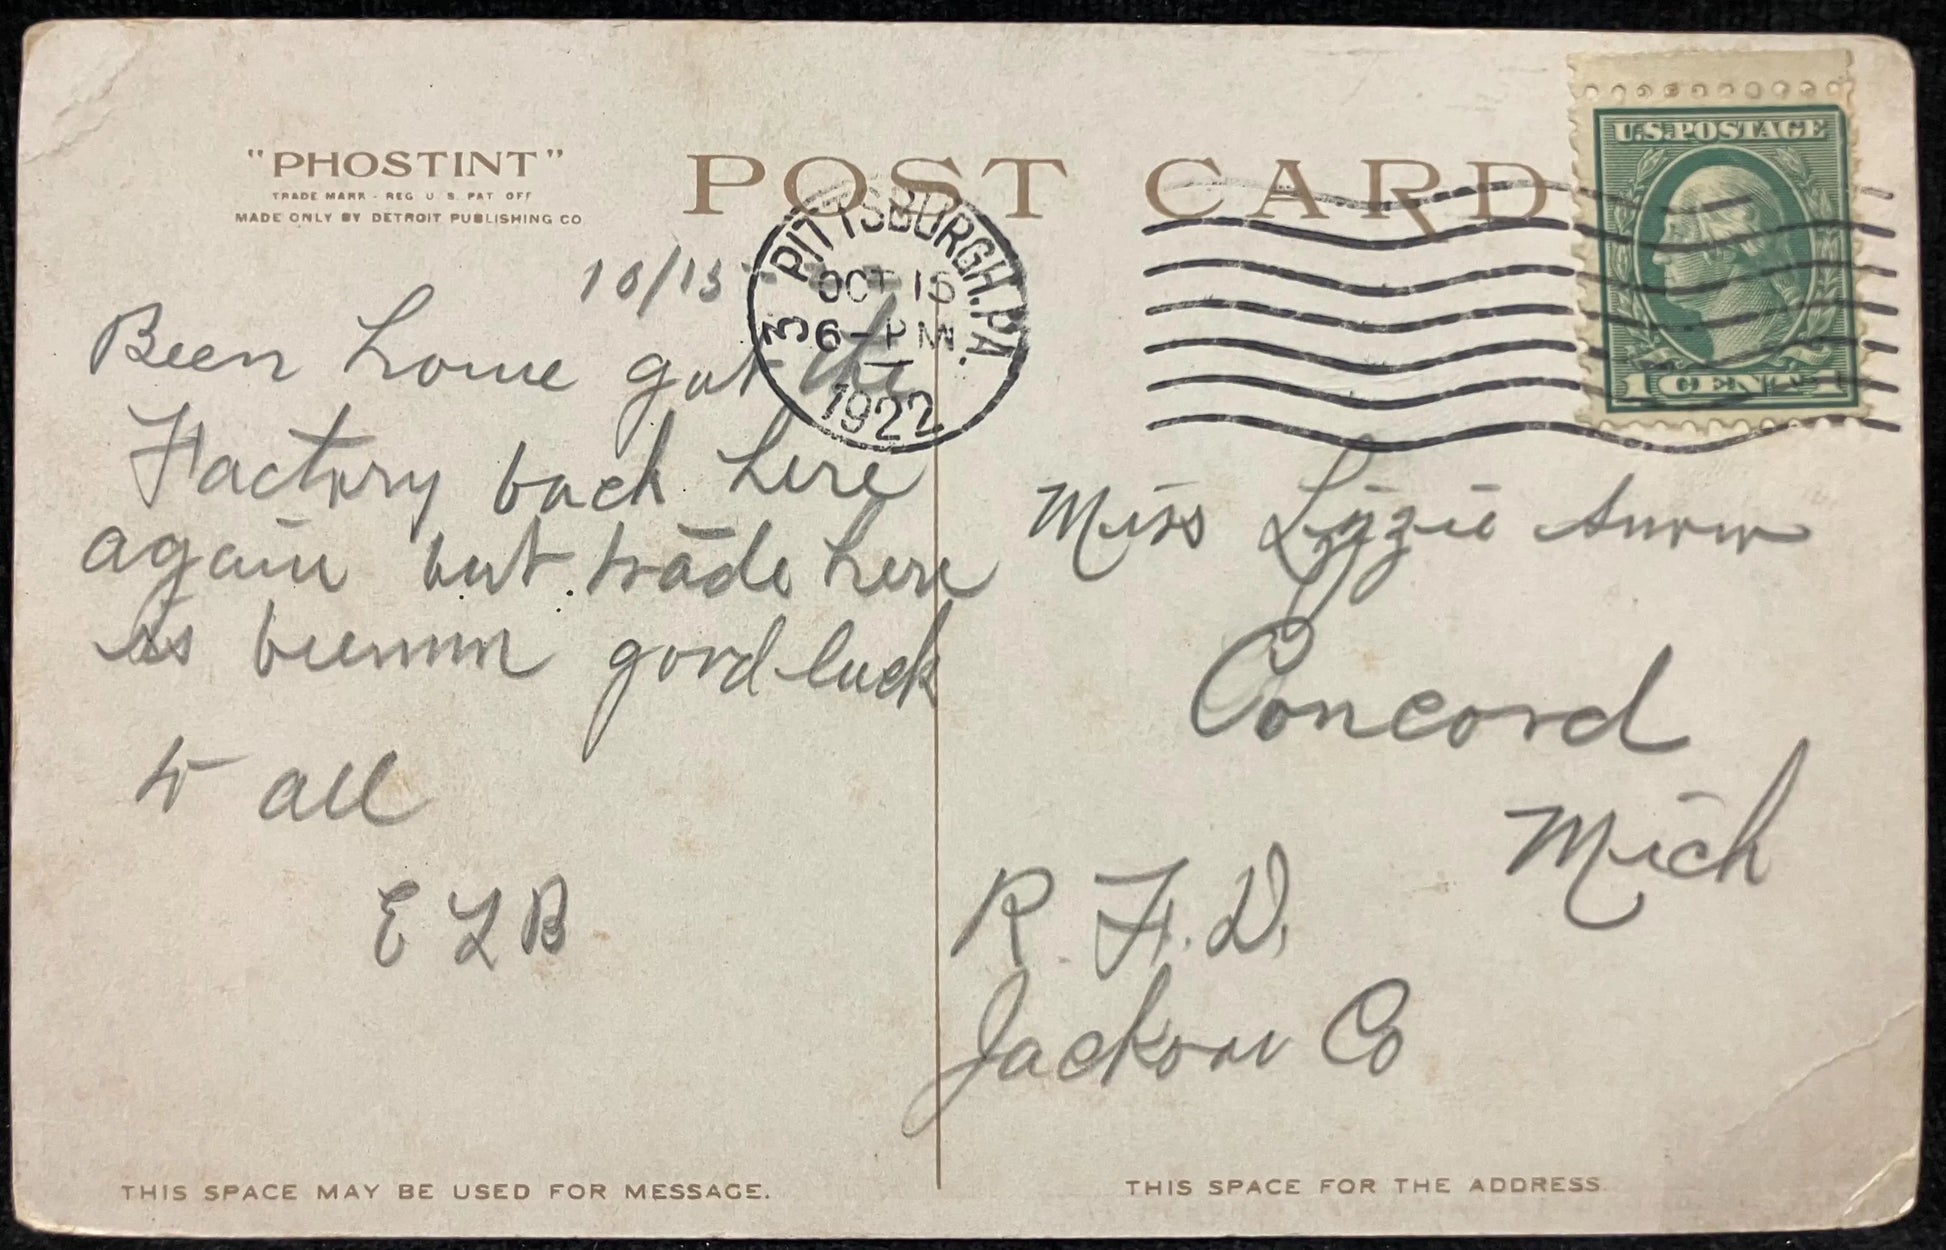 "PHOSTINT"
TRADE MARK - REG U S. PAT OFF
MADE ONLY BY DETROIT PUBLISHING CO
POST CARD
U.S. POSTAGE
1 CENT 1
PITTSBURGH, PA.
3
OCT 15
6-PM
1922
10/15
Been home got the
Factory back here
again but trade here
is bummn good luck
to all
E L B
Miss Lizzie Snow
Concord
Mich
R. F. D.
Jackson Co
THIS SPACE MAY BE USED FOR MESSAGE.
THIS SPACE FOR THE ADDRESS.